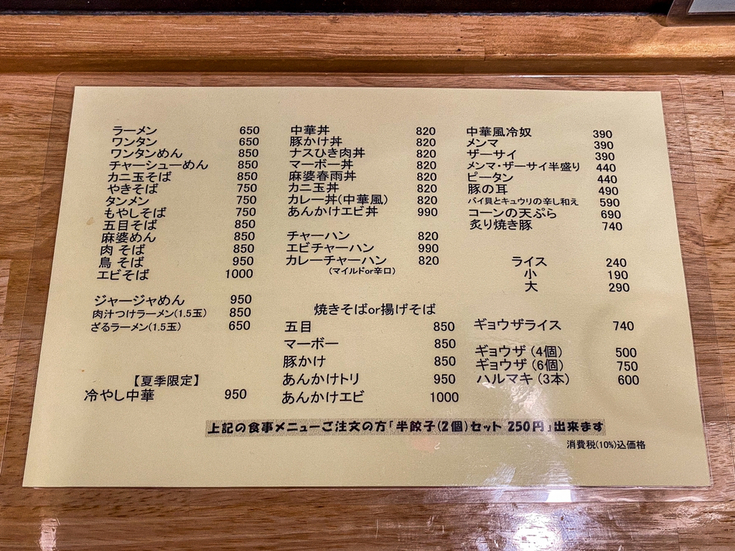 ラーメン 650
ワンタン 650
ワンタンめん 850
チャーシューめん 850
カニ玉そば 850
やきそば 750
タンメン 750
もやしそば 750
五目そば 850
麻婆めん 850
肉そば 850
鳥そば 950
エビそば 1000
ジャージャめん 950
肉汁つけラーメン(1.5玉) 850
ざるラーメン(1.5玉) 650
【夏季限定】
冷やし中華 950
中華丼 820
豚かけ丼 820
ナスひき肉丼 820
マーボー丼 820
麻婆春雨丼 820
カニ玉丼 820
カレー丼(中華風) 820
あんかけエビ丼 990
チャーハン 820
エビチャーハン 990
カレーチャーハン 820
(マイルドor辛口)
焼きそばor揚げそば
五目 850
マーボー 850
豚かけ 850
あんかけトリ 950
あんかけエビ 1000
中華風冷奴 390
メンマ 390
ザーサイ 390
メンマ・ザーサイ半盛り 440
ピータン 440
豚の耳 490
バイ貝とキュウリの辛し和え 590
コーンの天ぷら 690
炙り焼き豚 740
ライス 240
小 190
大 290
ギョウザライス 740
ギョウザ(4個) 500
ギョウザ(6個) 750
ハルマキ(3本) 600
上記の食事メニューご注文の方「半餃子(2個)セット 250円」出来ます
消費税(10%)込価格